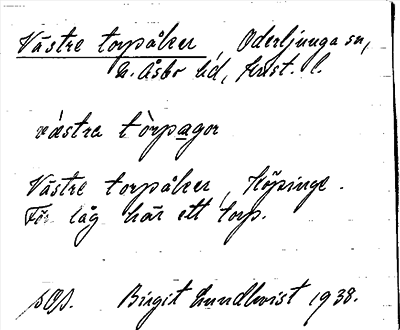 Västre torpåker, Oderljunga sn,
N. Åsbo hd, Krist. l.
västra tòrpagor
Västre torpåker, Köpinge.
Förr låg här ett torp.
Birgit Lundkvist 1938.